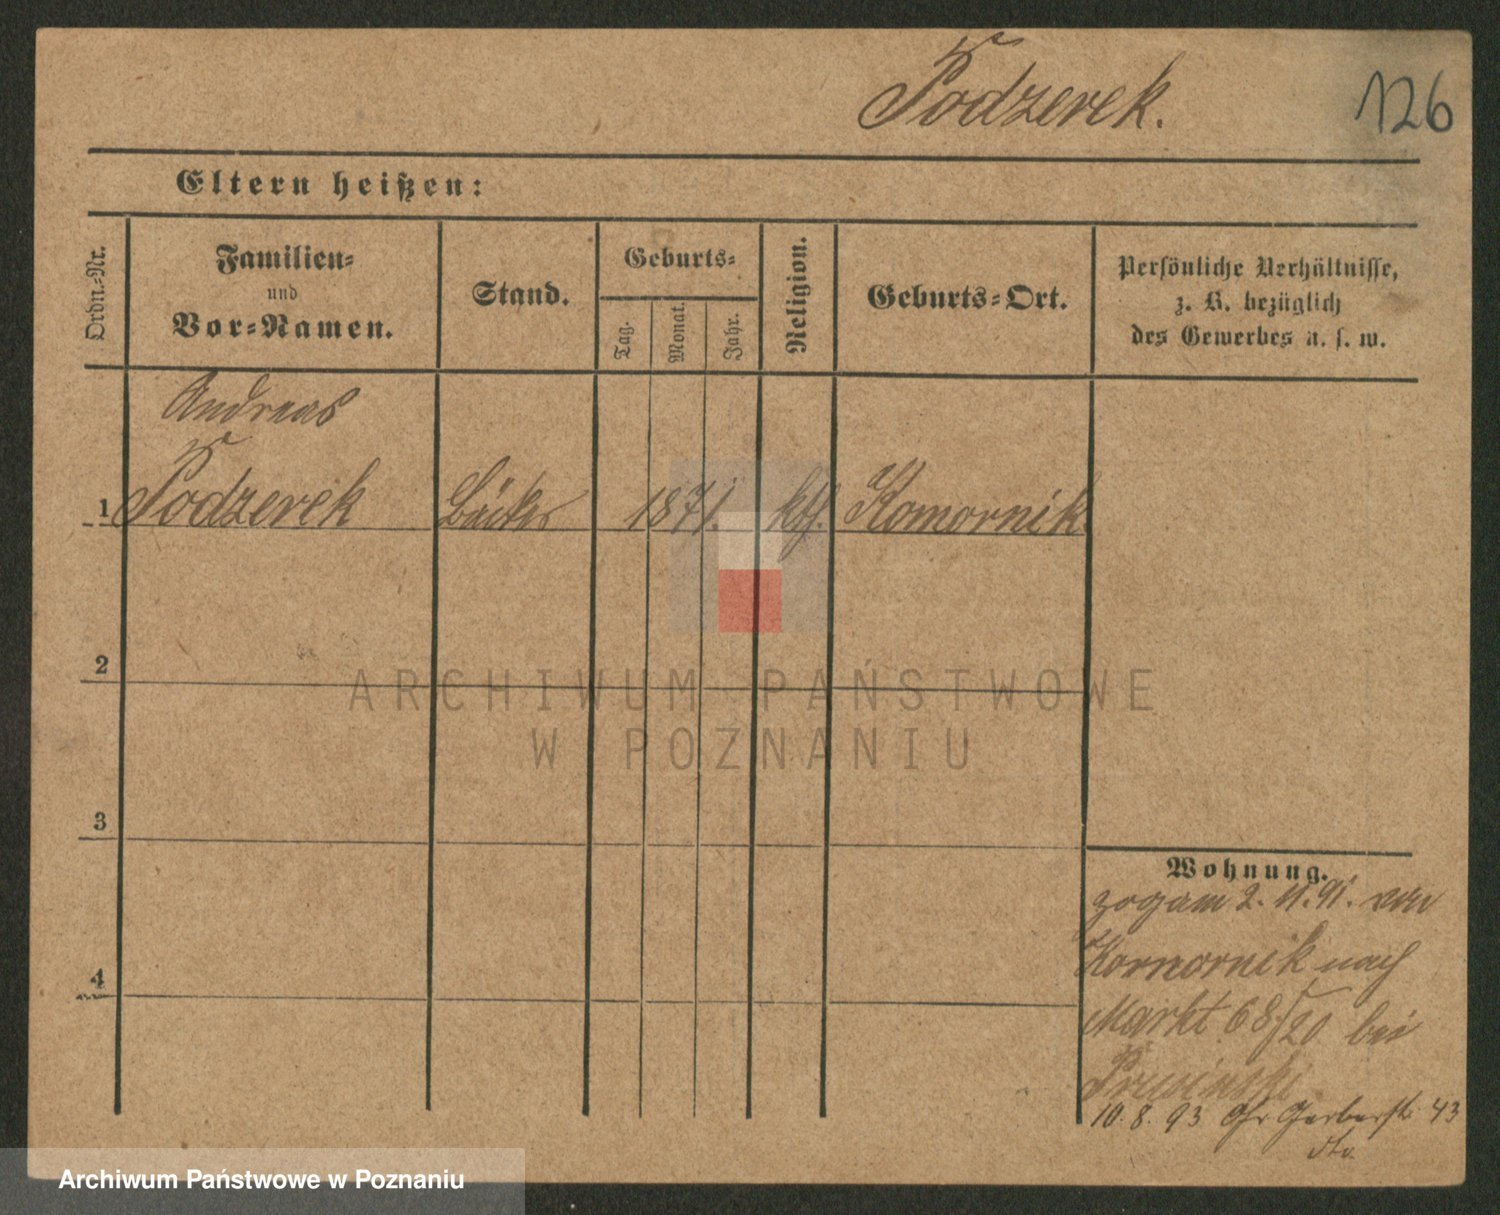 Podzerek.
126
Eltern heißen:
Ordn.-Nr.
Familien-
und
Vor-Namen.
Stand.
Geburts-
Tag.
Monat.
Jahr.
Religion.
Geburts-Ort.
Persönliche Verhältnisse,
z. B. bezüglich
des Gewerbes u. s. w.
Andreas
1 Podzerek Bäcker 1871. kth. Komornik
2
3
4
Wohnung.
zog am 2. 11. 91. von
Komornik nach
Markt 68/20 bei
10. 8. 93 Gr Gerberstr. 43
dto.
ARCHIWUM PAŃSTWOWE
W POZNANIU
Archiwum Państwowe w Poznaniu